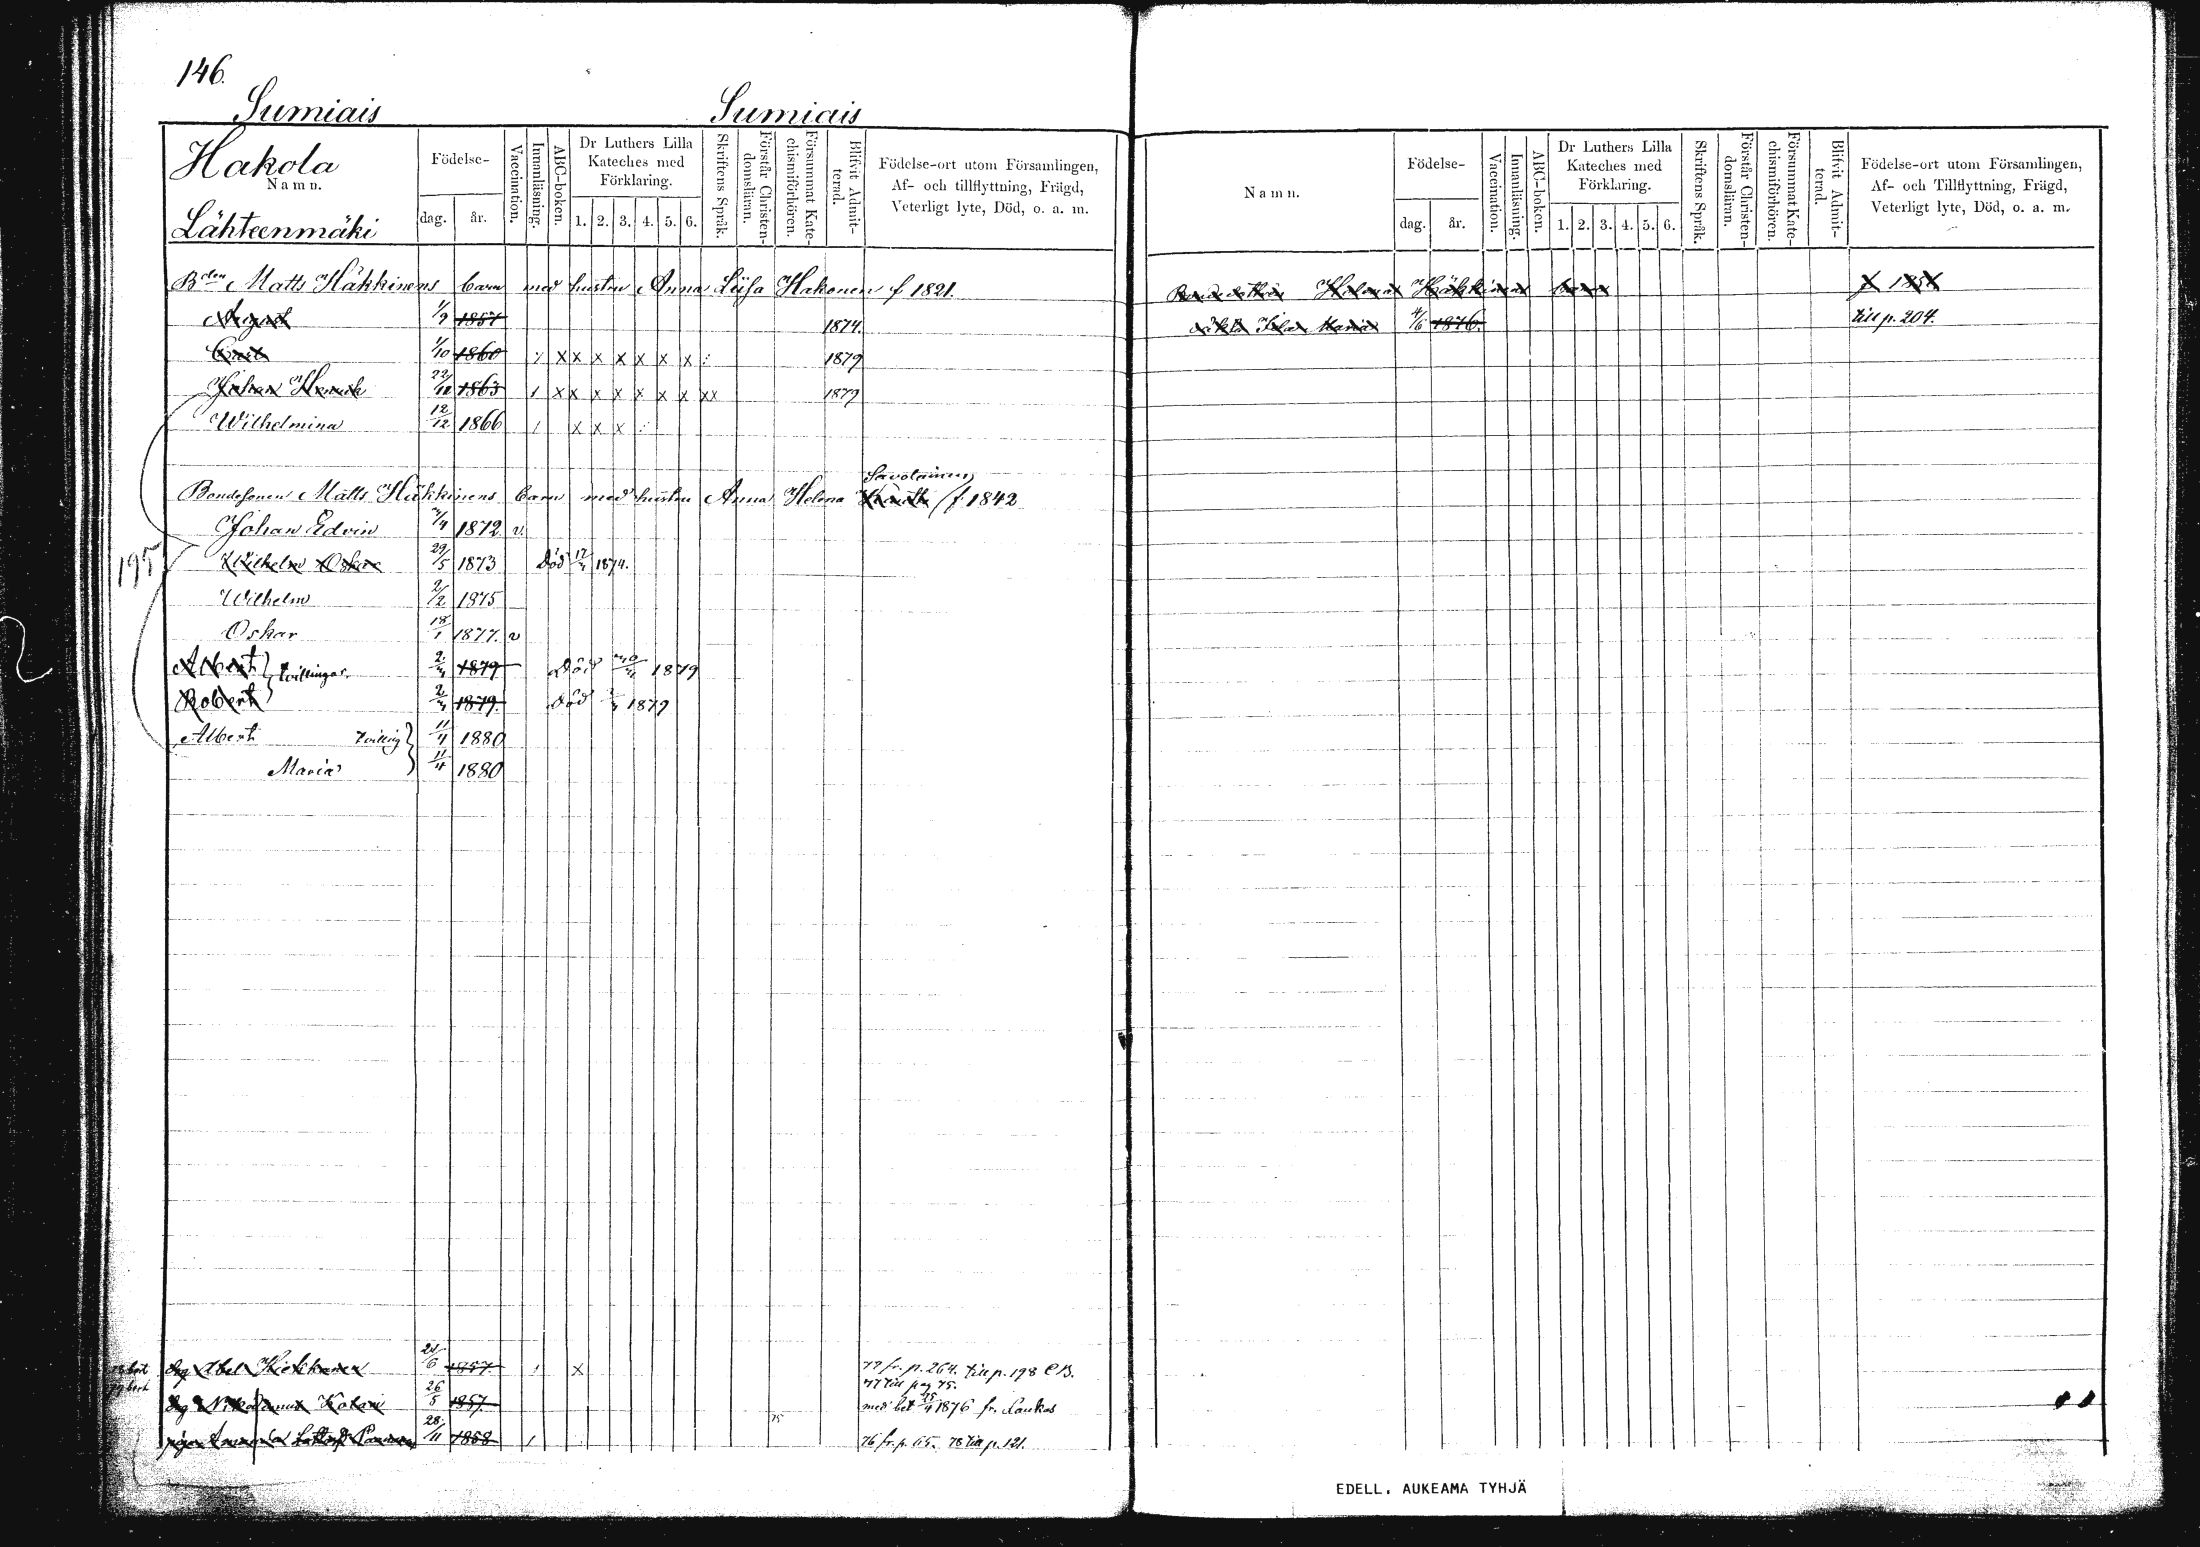 146.
Sumiais Sumiais
Hakola
Namn.
Lähteenmäki
Födelse-
dag. år.
Vaccination.
Innanläsning.
ABC-boken.
Dr Luthers Lilla
Kateches med
Förklaring.
1. 2. 3. 4. 5. 6.
Skriftens Språk.
Förstår Christen-
domsläran.
Försummat Kate-
chismiförhören.
Blifvit Admit-
terad.
Födelse-ort utom Församlingen,
Af- och tillflyttning, Frägd,
Veterligt lyte, Död, o. a. m.
Bden Matts Häkkinens barn med hustru Anna Liisa Hakonen f 1821.
August 1/9 1857 1874.
1/10 1860 x x x x x x x 1879
Johan Henrik 22/11 1863 1 x x x x x x x x x 1879
Wilhelmina 12/12 1866 / x x x
Savolainen
Bondesonen Matts Häkkinens barn med hustru Anna Helena (f 1842
Johan Edvin 1872 v.
195
Wilhelm Oskar 29/5 1873 död 1874.
Wilhelm 2/2 1875
Oskar 18/1 1877. v
Albert } tvillingar. 1879 Död 1879
Robert 1879. död 1879
Albert tvilling } 11/4 1880
Maria 11/4 1880
Drg Abel Kiekkanen 24/6 1857. 1 x 77 fr. p. 264. till p. 198
77 till pag 75.
Drg Nikodemus 26/5 1857. med bet 1876 fr. Laukas
pigan 28/11 1858 1 75 76 fr. p. 65. 78 till p. 121.
Namn.
Födelse-
dag. år.
Vaccination.
Innanläsning.
ABC-boken.
Dr Luthers Lilla
Kateches med
Förklaring.
1. 2. 3. 4. 5. 6.
Skriftens Språk.
Förstår Christen-
domsläran.
Försummat Kate-
chismiförhören.
Blifvit Admit-
terad.
Födelse-ort utom Församlingen,
Af- och Tillflyttning, Frägd,
Veterligt lyte, Död, o. a. m.
Helena Häkkinens barn
Maria 4/6 1876. till p. 204.
EDELL. AUKEAMA TYHJÄ